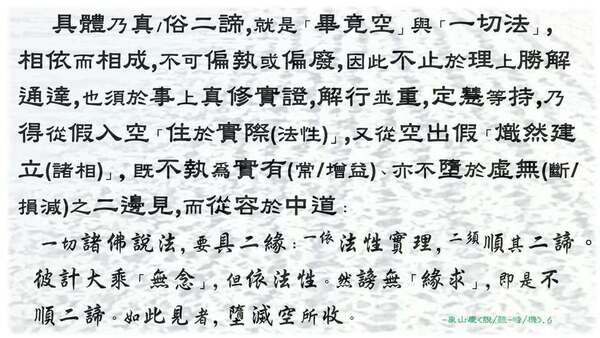 具體乃真/俗二諦,就是「畢竟空」與「一切法」,
相依而相成,不可偏執或偏廢,因此不止於理上勝解
通達,也須於事上真修實證,解行並重,定慧等持,乃
得從假入空「住於實際(法性)」,又從空出假「熾然建
立(諸相)」, 既不執為實有(常/增益)、亦不墮於虛無(斷/
損減)之二邊見,而從容於中道:
一切諸佛說法,要具二緣:一依法性實理,二須順其二諦。
彼計大乘「無念」,但依法性。然謗無「緣求」,即是不
順二諦。如此見者,墮滅空所收。